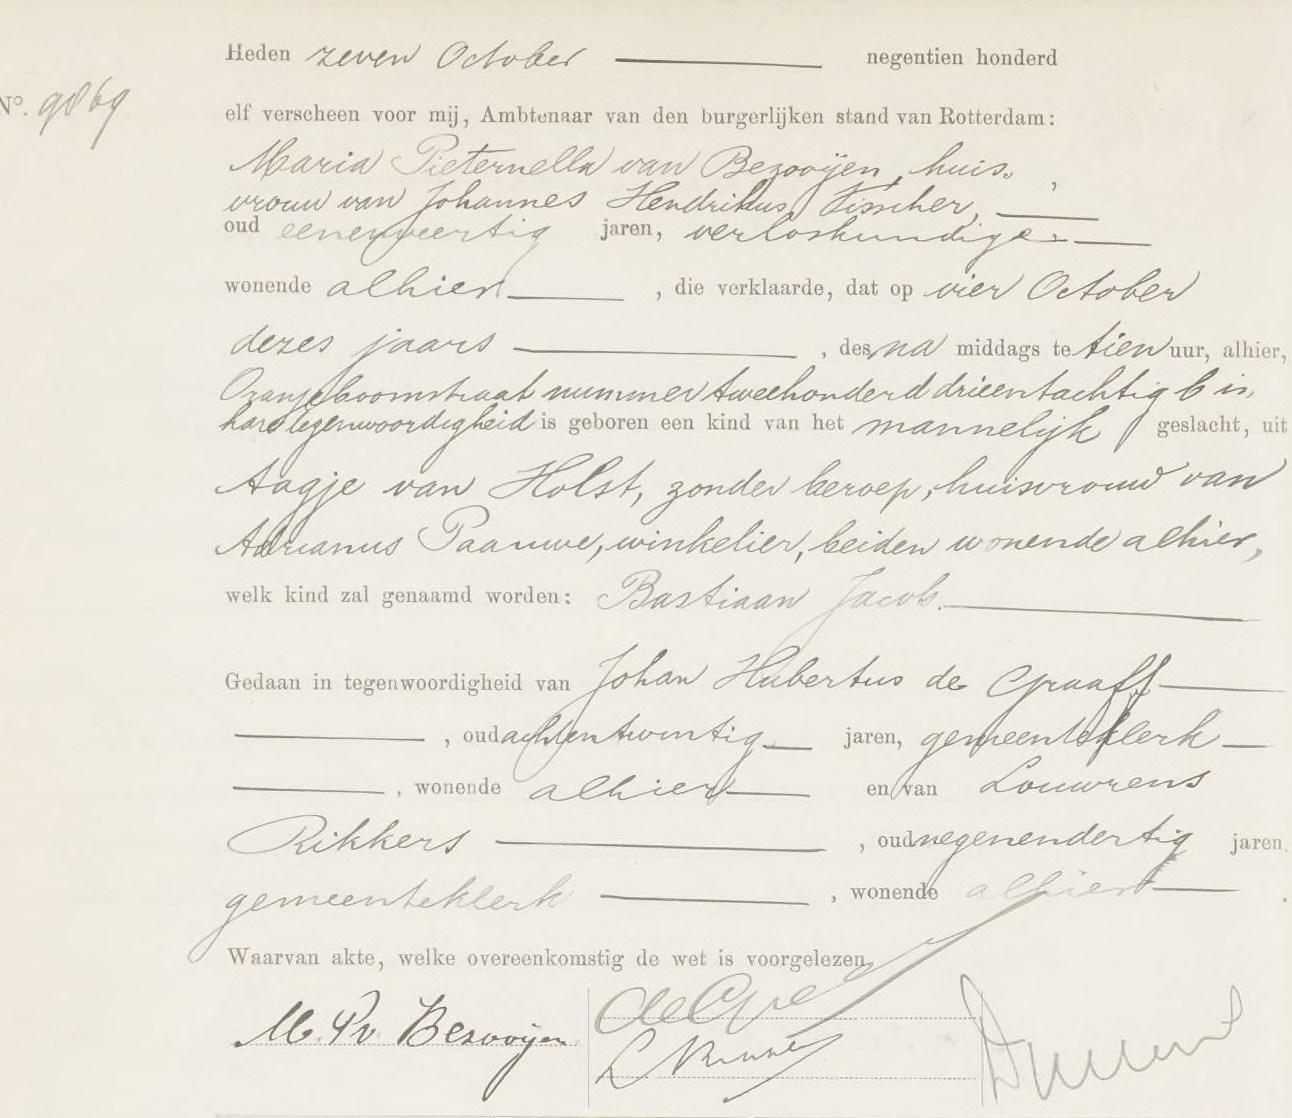 Heden zeven October negentien honderd
N°. 9869
elf verscheen voor mij, Ambtenaar van den burgerlijken stand van Rotterdam:
Maria Pieternella van Bezooijen, huis-
vrouw van Johannes Hendrikus Visscher,
oud eenenveertig jaren, verloskundige
wonende alhier, die verklaarde, dat op vier October
dezes jaars, des na middags te tien uur, alhier,
Oranjeboomstraat nummer tweehonderd drieentachtig b in
hare tegenwoordigheid is geboren een kind van het mannelijk geslacht, uit
Aagje van Holst, zonder beroep, huisvrouw van
Adrianus Paauwe, winkelier, beiden wonende alhier,
welk kind zal genaamd worden: Bastiaan Jacob.
Gedaan in tegenwoordigheid van Johan Hubertus de Graaff
, oud achtentwintig jaren, gemeenteklerk
, wonende alhier en van Louwrens
Rikkers, oud negenendertig jaren.
gemeenteklerk, wonende alhier.
Waarvan akte, welke overeenkomstig de wet is voorgelezen,
M. P. v Bezooijen